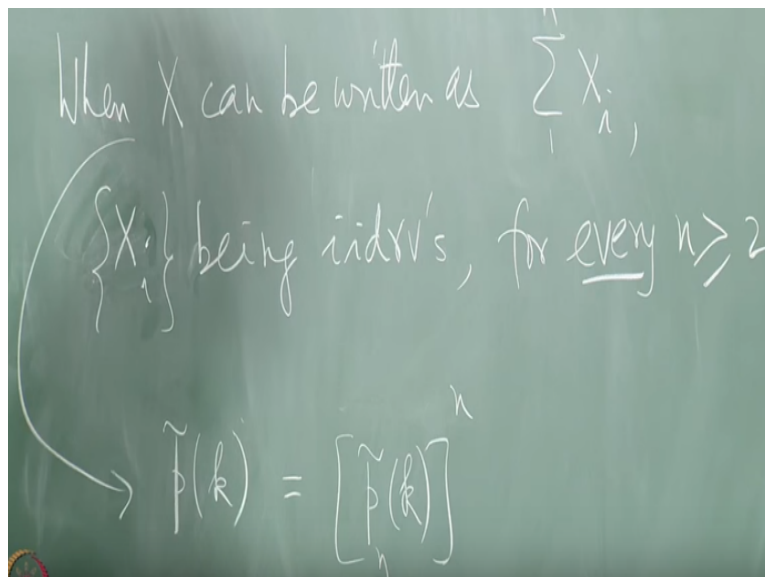 When X can be written as \sum_{1}^{n} X_i,
{X_i} being iidrv's, for every n ⩾ 2
p̃(k) = [p̃_n(k)]^n